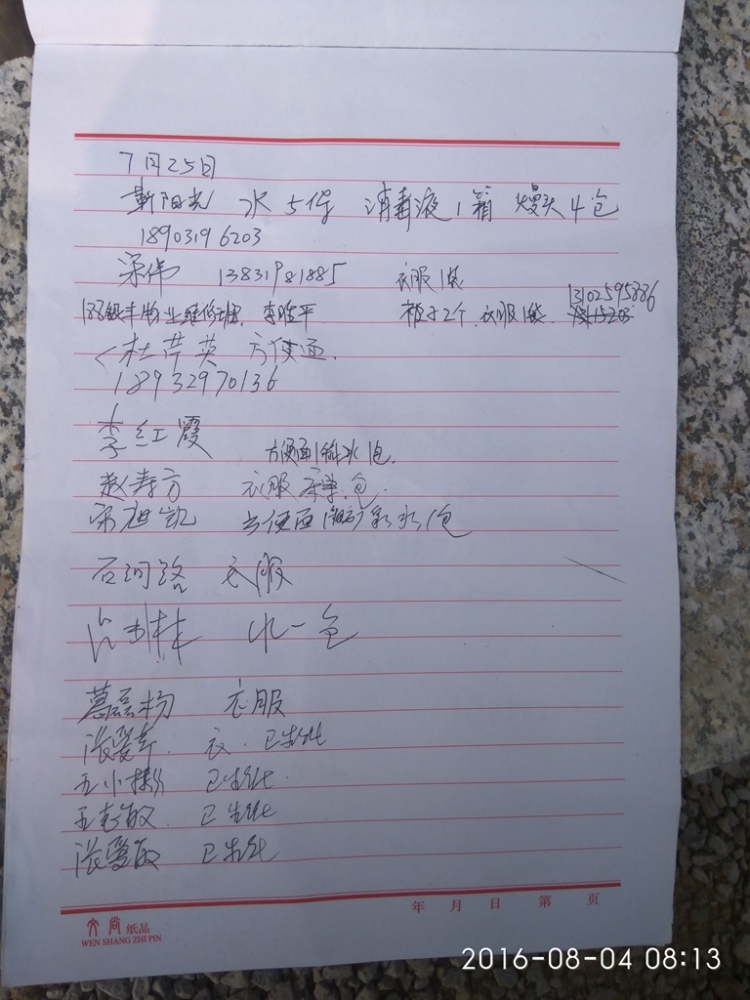 7月25日
靳阳光 水5件 消毒液1箱 馒头4包
18903196203
梁伟 13831981885 衣服1袋
13102595886
188银丰物业维修班 李 平 裤子2个 衣服1袋
杜芹英 方便面
18932970136
李红霞
方便面1箱水1包
赵寿方 衣服 包
宋旭凯 方便面1箱矿泉水1包
石河路 衣服
水一包
慕磊粉 衣服
张爱 衣
王小
王彦敏
张爱敏
年 月 日 第 页
文尚 纸品
WEN SHANG ZHI PIN
2016-08-04 08:13